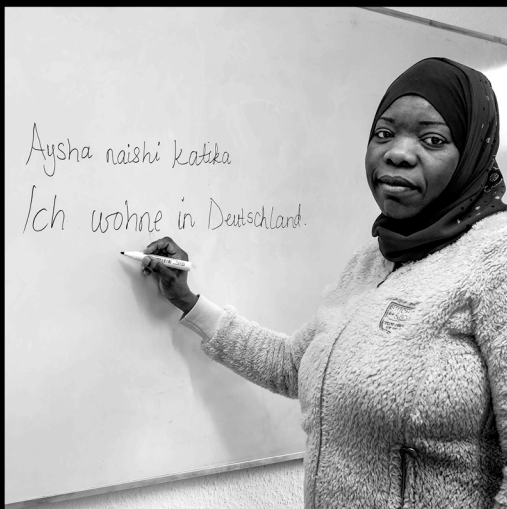 Aysha naishi katika
Ich wohne in Deutschland.